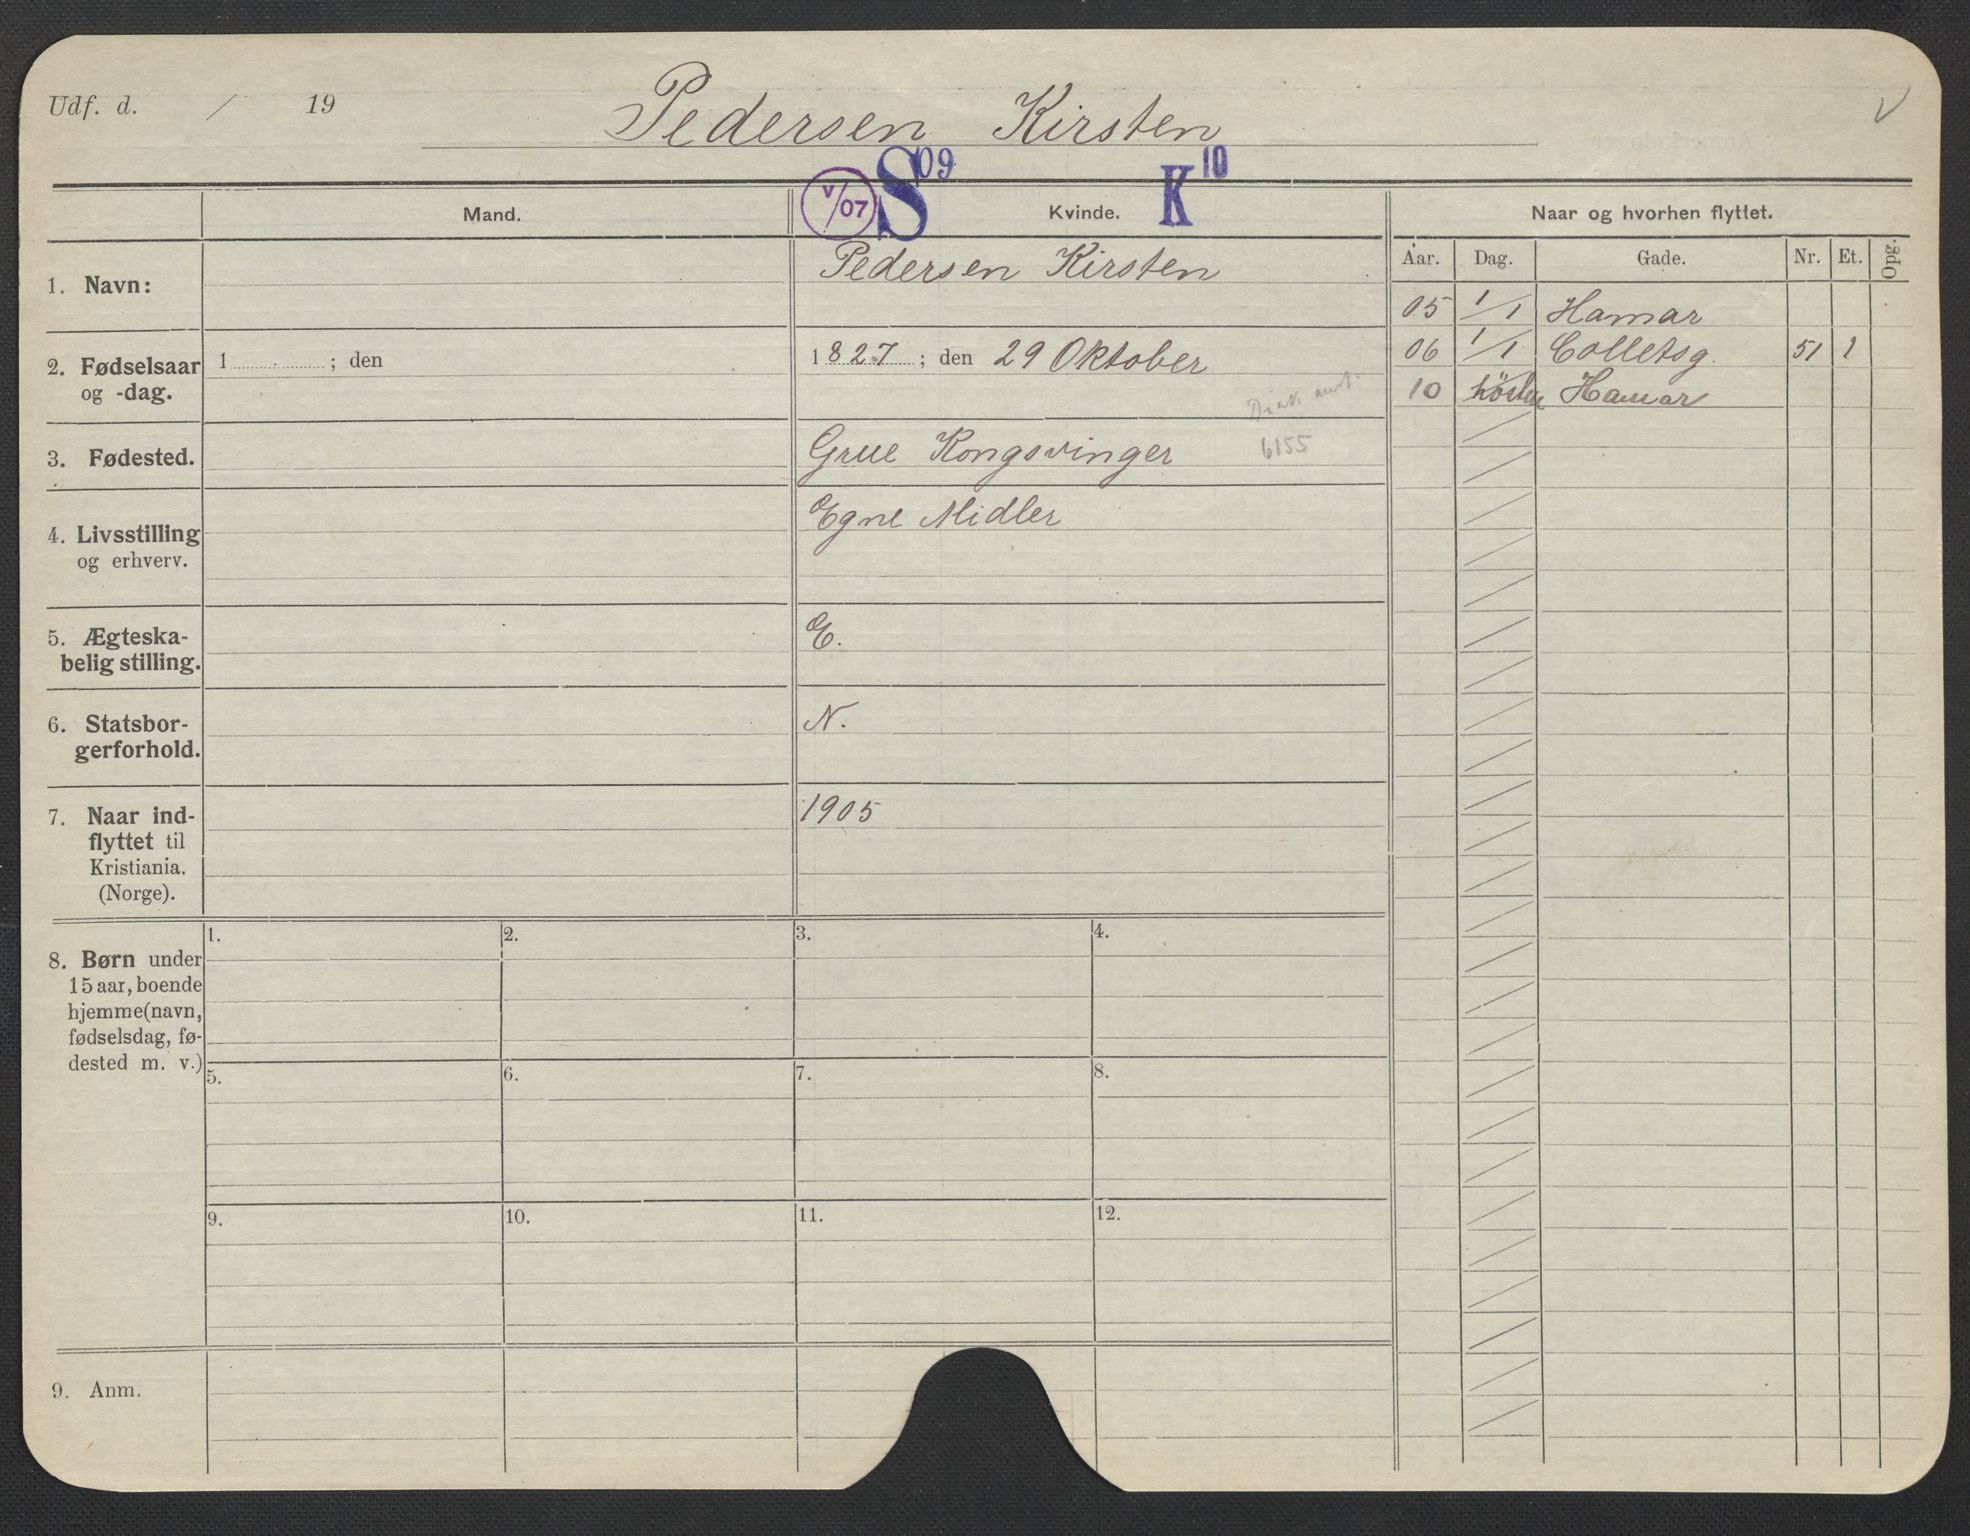 Udf. d. / 19
Pedersen Kirsten
V
V/07 S 09 K 10
Mand.
Kvinde.
Naar og hvorhen flyttet.
Aar. Dag. Gade. Nr. Et. Opg.
1. Navn:
Pedersen Kirsten
05 1/1 Hamar
06 1/1 Colletsg. 51 1
10 høsten Hamar
2. Fødselsaar
og -dag.
1 ; den
1827 ; den 29 Oktober
3. Fødested.
Grue Kongsvinger
6155
4. Livsstilling
og erhverv.
Egne Midler
5. Ægteska-
belig stilling.
E.
6. Statsbor-
gerforhold.
N.
7. Naar ind-
flyttet til
Kristiania.
(Norge).
1905
8. Børn under
15 aar, boende
hjemme(navn,
fødselsdag, fø-
dested m. v.)
1. 2. 3. 4.
5. 6. 7. 8.
9. 10. 11. 12.
9. Anm.